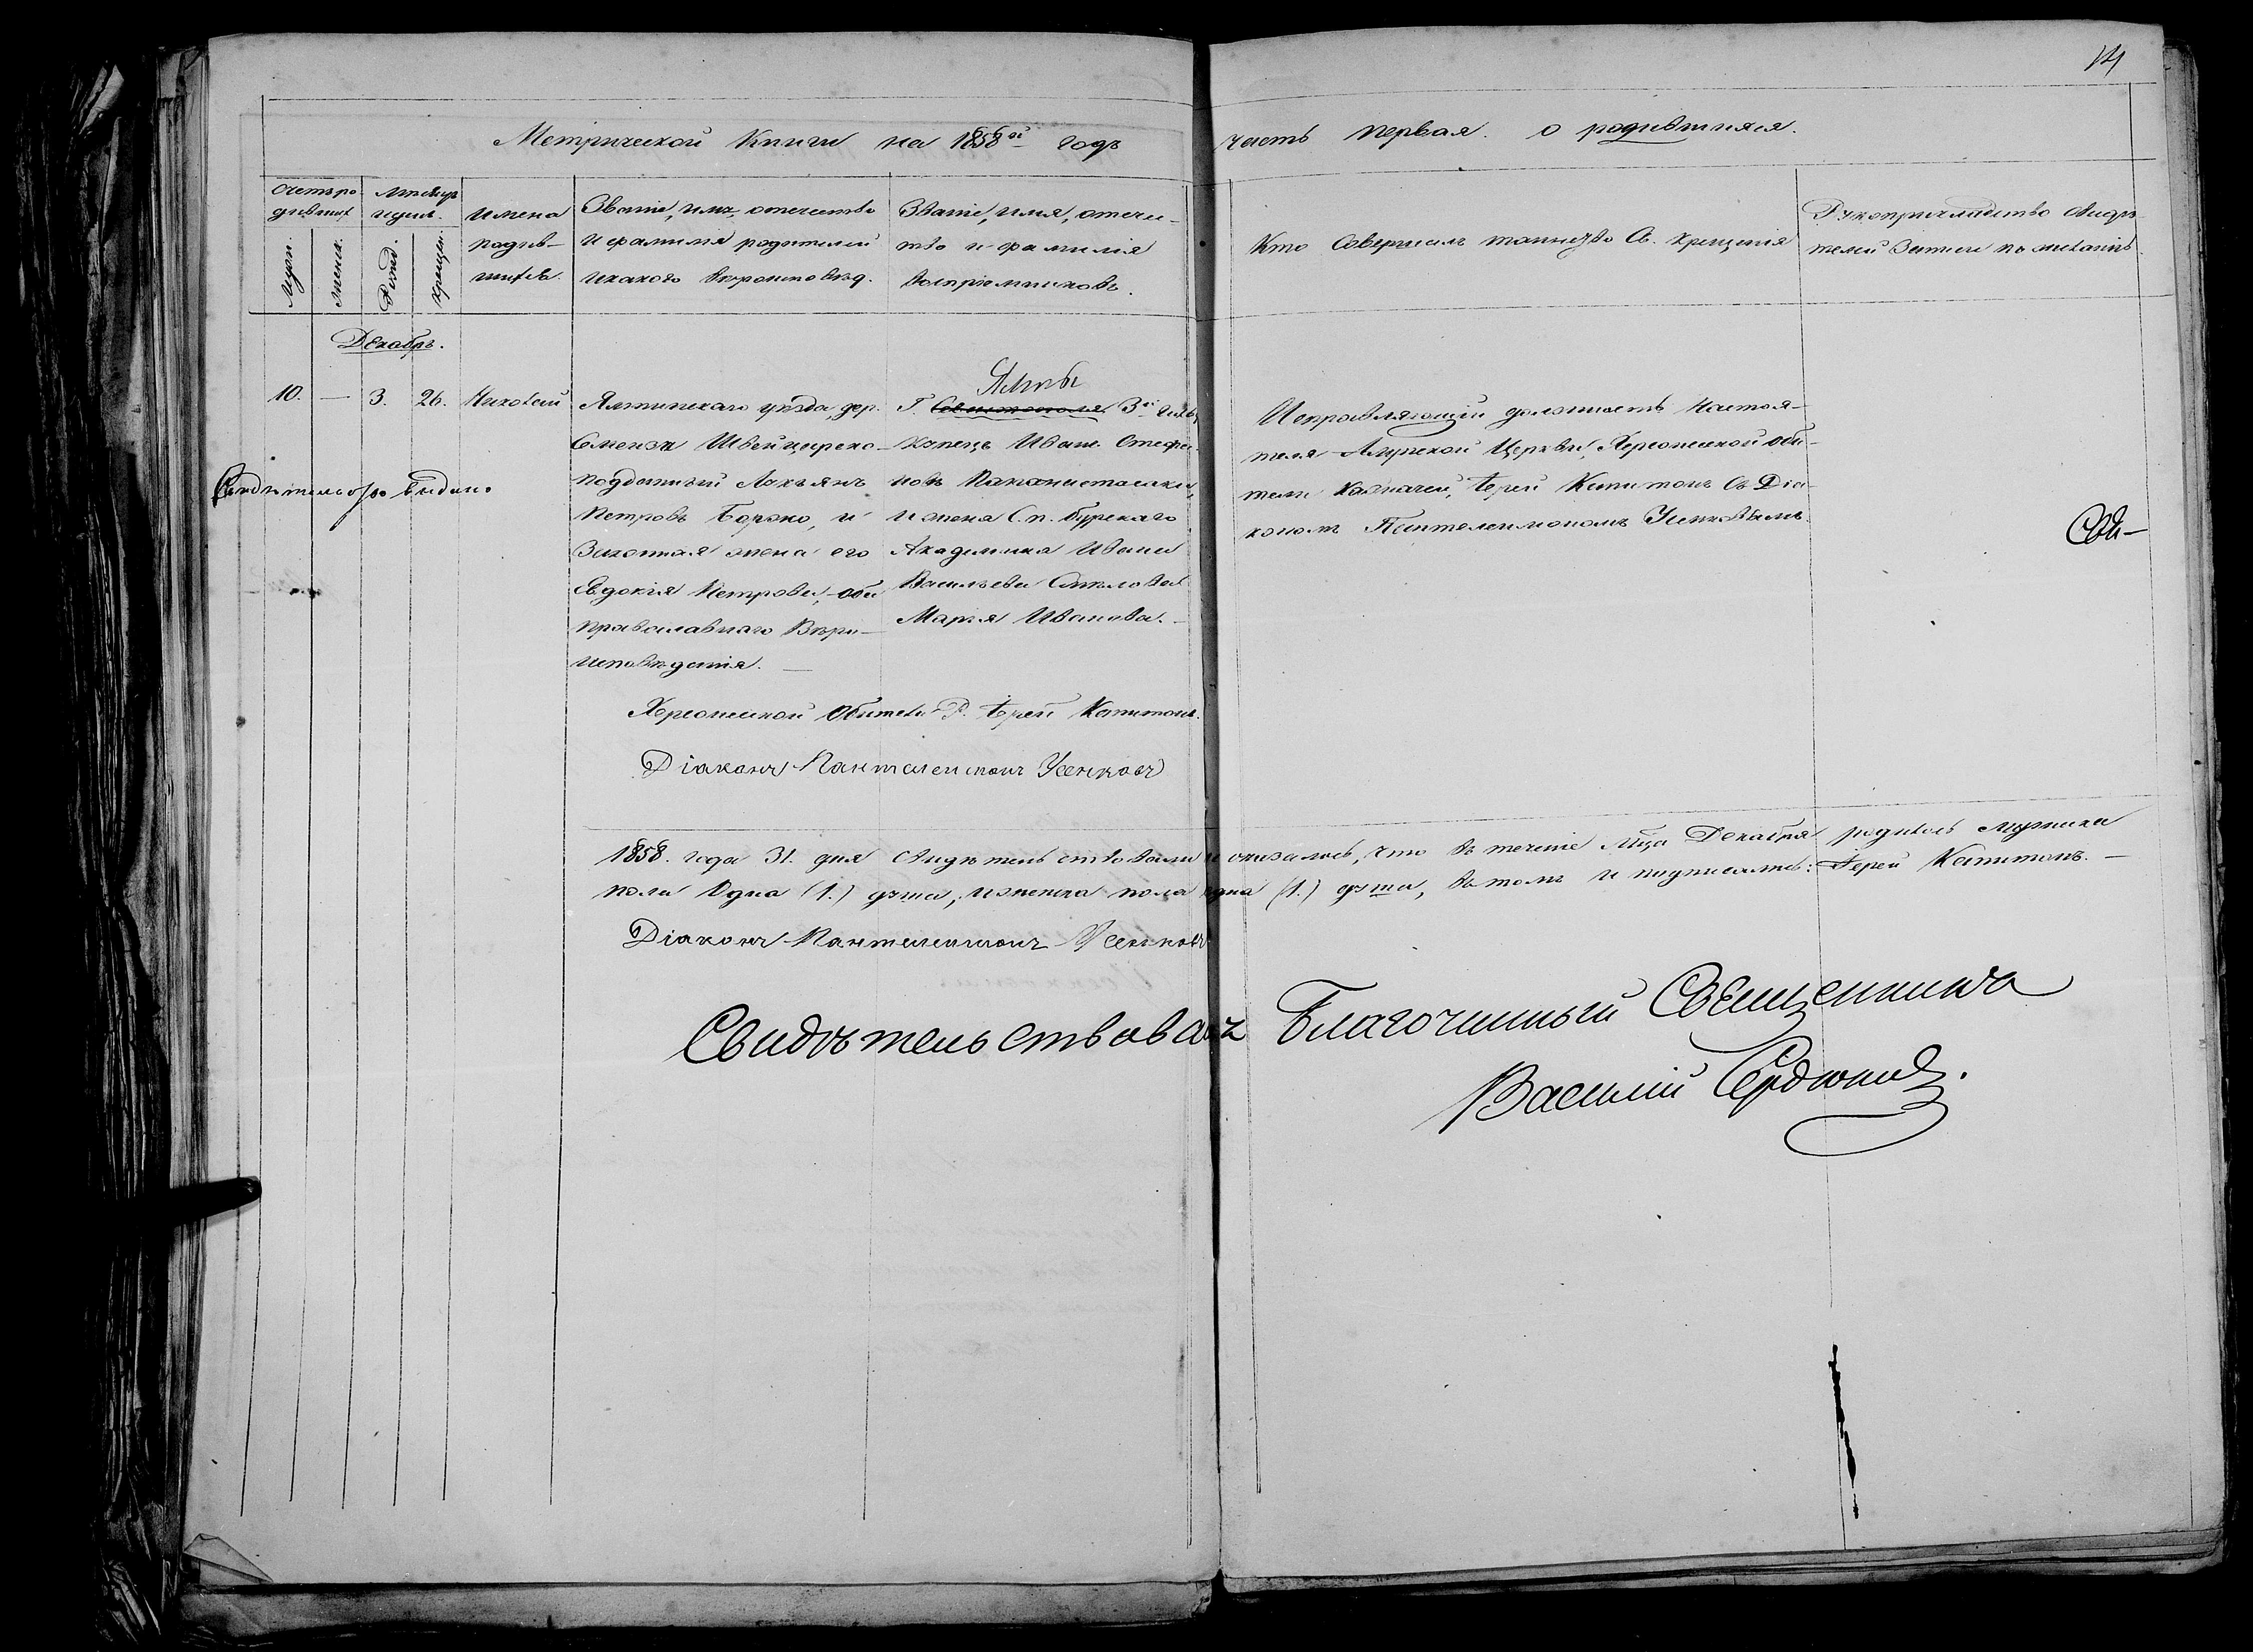 14
Метрической Книги на 1858ой годъ
часть первая. о родившихся.
Счетъ ро-
дившихъ
Мужи.
Женск.
Мѣсяцъ
и день.
Рожд.
Крещен.
Имена
родив-
шихся.
Званіе, имя, отечество
и фамилія родителей
и какого вѣроисповѣд.
Званіе, имя, отече-
тво и фамилія
воспріемниковъ.
Кто совершалъ таинство Св. крещенія
Рукоприкладство свидѣ-
телей записи по желанію
Декабрь.
10. — 3. 26. Николай
Свидѣтельство видано
Ялтинскаго уѣзда, дер.
Симеизъ Швейцарско-
подданный
Петровъ и
Законная жена его
Евдокія Петрова, оба
православнаго Вѣро-
исповѣданія. —
Ялты
Г. Севастополя 3й гиль.
купецъ Иванъ Стефа-
новъ
и жена С. п. бурскаго
Академика Ивана
Васильева
Марія Иванова. —
Исправляющій должность Настоя-
теля Алупской Церкви, Херсонеской оби-
тели Казначей, Іерей Капитонъ съ Діа-
кономъ Пантелеимономъ Усенковымъ.
Сви-
Херсонеской Обители Р. Іерей Капитонъ.
Діаконъ Пантелеимонъ Усенковъ
1858. года 31. дня свидѣтельствовали и оказалось, что въ теченіе Мца Декабря родилось мужеска
пола одна (1.) душа, и женска пола одна (1.) душа, въ томъ и подписались: Іерей Капитонъ. —
Діаконъ Пантелеимонъ Усенковъ
Свидѣтельствовалъ Благочинный Священникъ
Василій Сердюковъ.